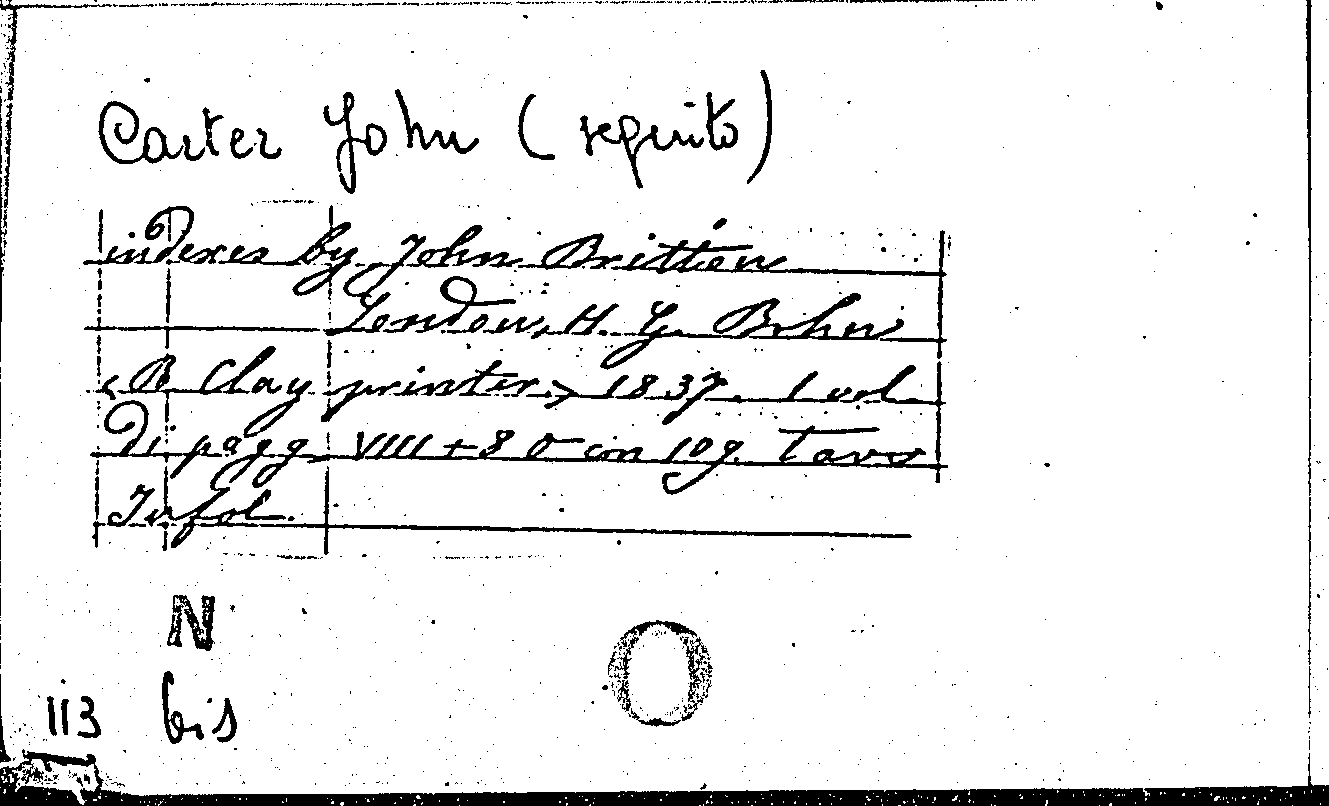 Carter John (seguito)
indexes by John Britton
London, H. G. Bohn
(R Clay printer) 1837. 1 vol.
di pagg. VIII + 80 con 109. Tavv
In fol.
N
113 bis